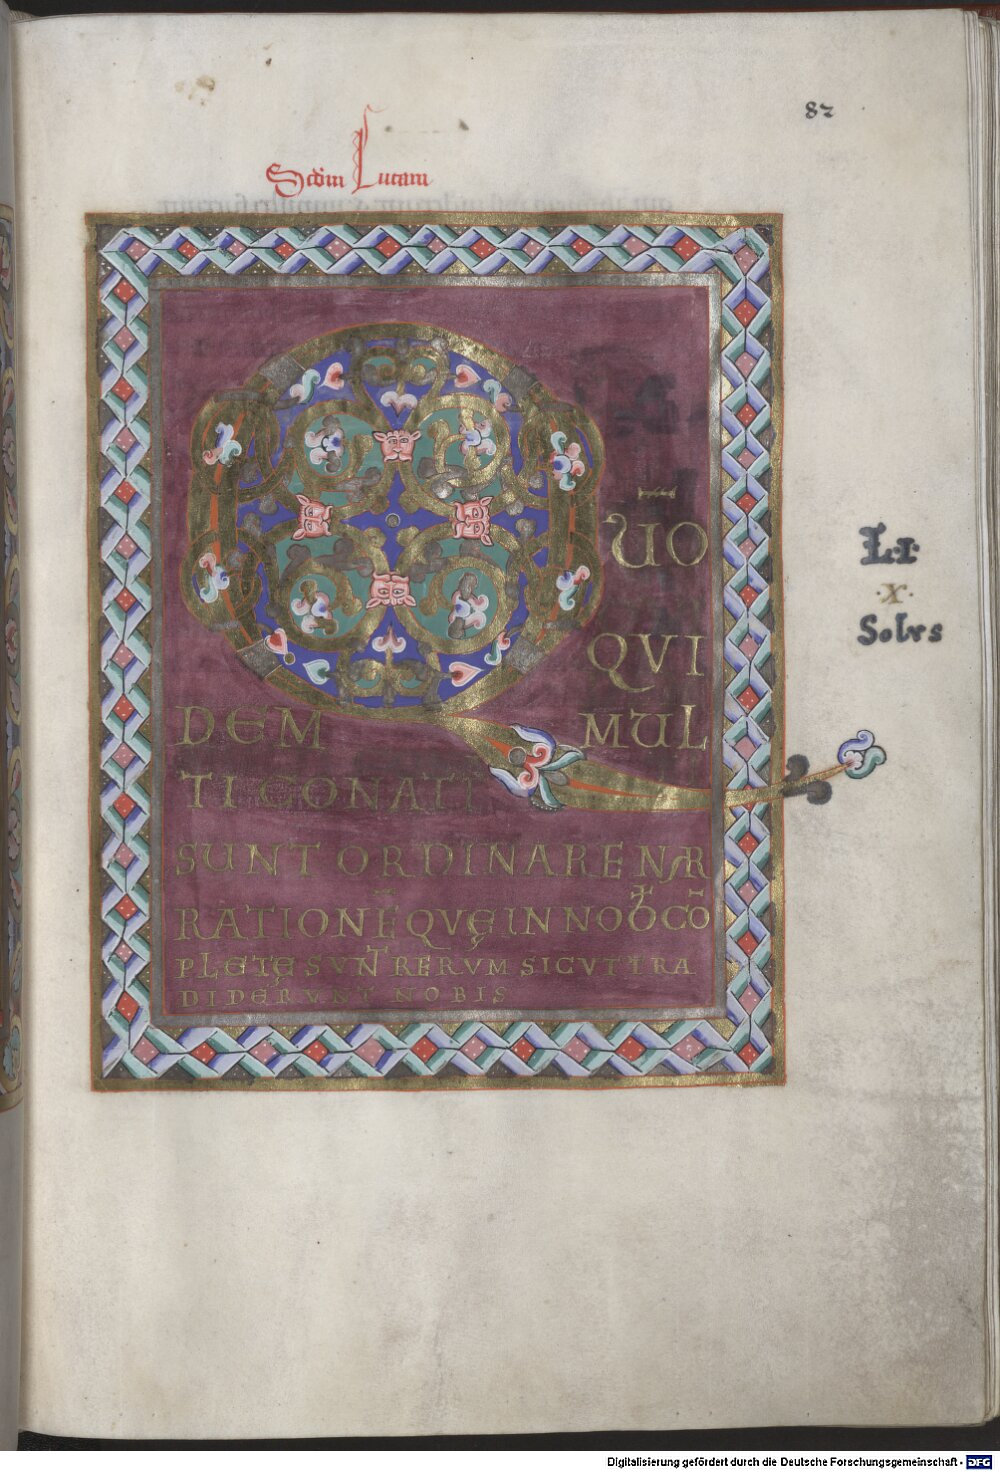 82
Scdm Lucam
Q
ŪO
QVI
DEM MUL
TI CONATI
SUNT ORDINARE NAR
RATIONĒ QVĘ IN NOB̄ CŌ
PLETĘ SVNT RERVM SICVT TRA
DIDERVNT NOBIS
L·I·
·X·
Solvs
Digitalisierung gefördert durch die Deutsche Forschungsgemeinschaft - DFG